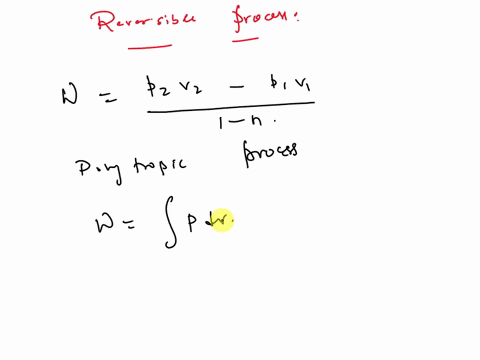 Reversible process:
W = p₂ v₂ - p₁ v₁ / 1-n.
Polytropic process
W = ∫ p dv.